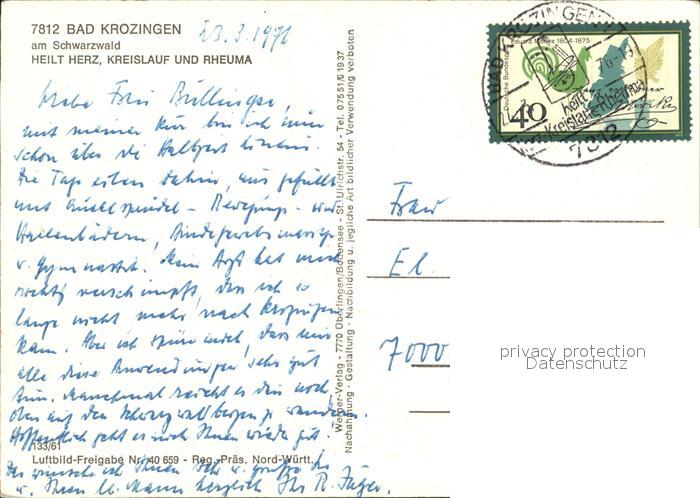 7812 BAD KROZINGEN
am Schwarzwald
HEILT HERZ, KREISLAUF UND RHEUMA
23.3.1976
Liebe Frau Bullinger,
mit meiner Kur bin ich nun
schon über die Halbzeit hinaus.
Die Tage eilen dahin, ausgefüllt
mit Sprudel - Bewegungs- und
Wannenbädern, Bindegewebsmassage
u. Gymnastik. Mein Arzt hat mich
richtig verschimpft, dass ich so
lange nicht mehr nach Krozingen
kam. Aber ich spüre auch, dass mir
alle diese Anwendungen sehr gut
tun. Manchmal reicht es dann noch,
oben auf den Schwarzwaldbergen zu wandern.
Hoffentlich geht es auch Ihnen wieder gut.
133/61
Luftbild-Freigabe Nr. 40 659 - Reg.-Präs. Nord-Württ.
Das wünsche ich Ihnen sehr u. grüsse Sie
u. Ihren lb. Mann herzlich Ihr R. Jäger.
Werner-Verlag - 7770 Überlingen/Bodensee - St.-Ulrichstr. 54 - Tel. 07551/61937
Nachahmung - Gestaltung - Nachbildung u. jegliche Art bildlicher Verwendung verboten
Deutsche Bundespost
Eduard Mörike 1804-1875
40
BAD KROZINGEN
heilt
Kreislauf Rheuma
7812
Frau
El.
7000
privacy protection
Datenschutz